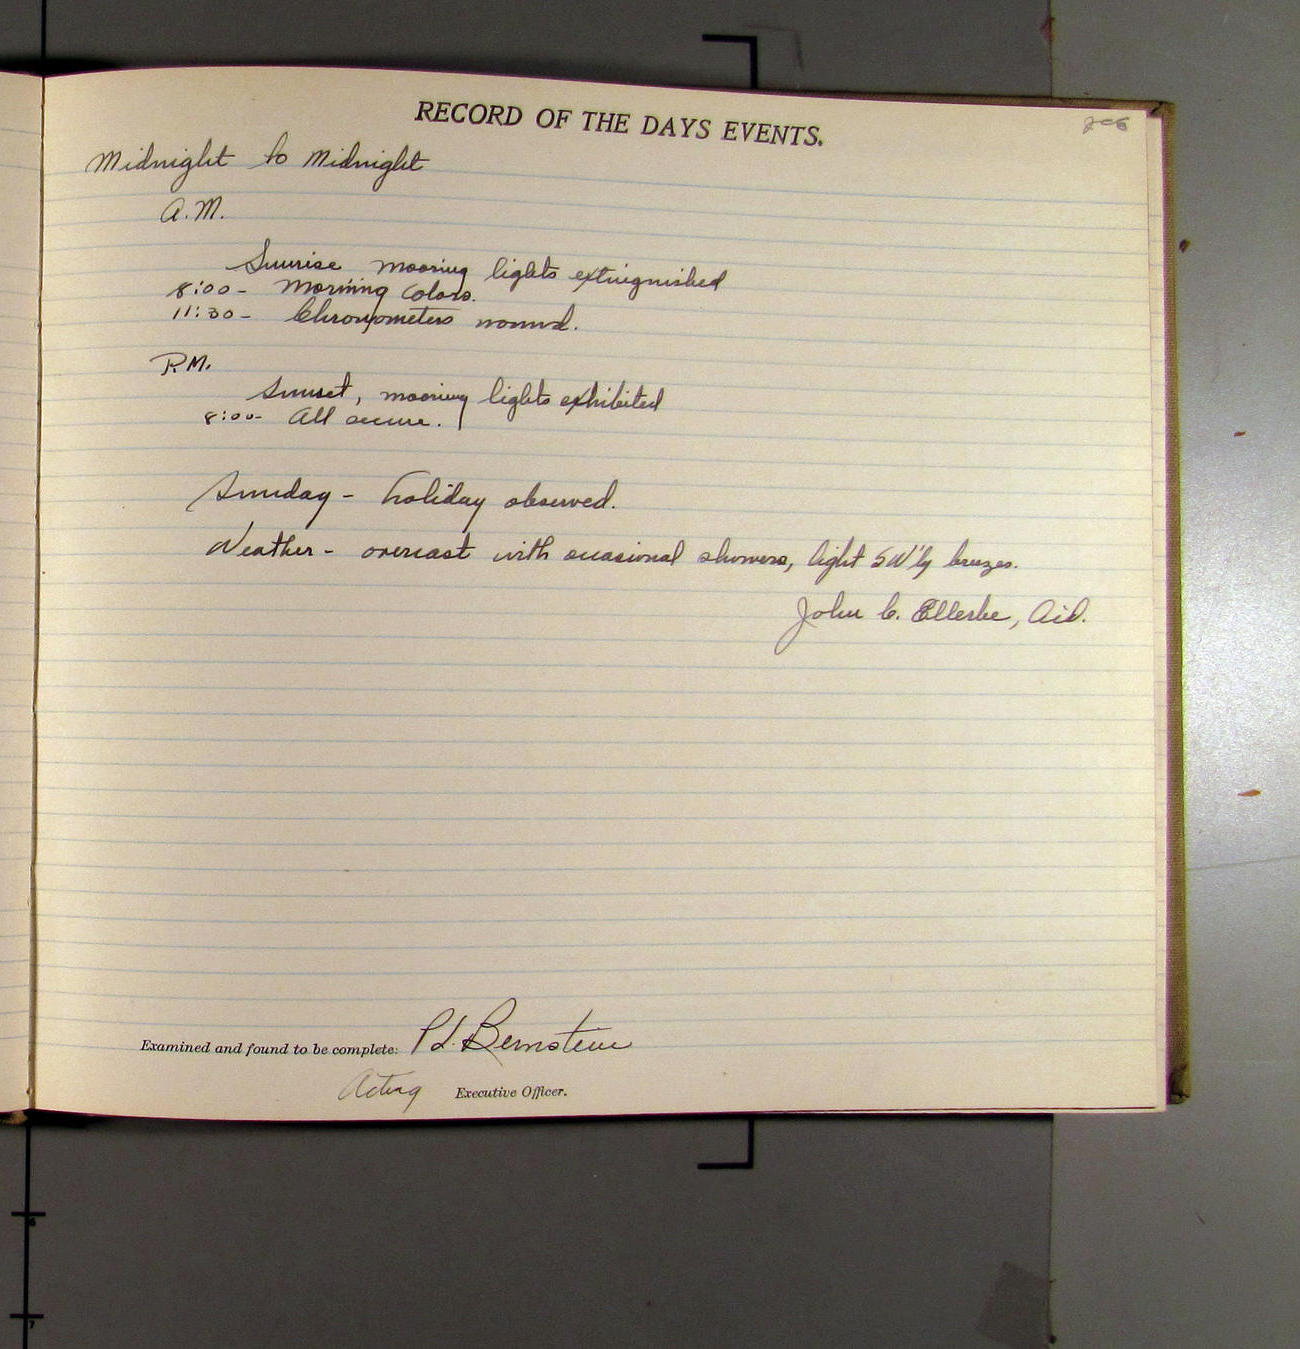 RECORD OF THE DAYS EVENTS.
206
Midnight to Midnight
A.M.
Sunrise mooring lights extinguished
8:00- Morning Colors.
11:30- Chronometers wound.
P.M.
Sunset, mooring lights exhibited
8:00- All secure.
Sunday - holiday observed.
Weather - overcast with occasional showers, light SW'ly breezes.
John C. Ellerbe, Aid.
Examined and found to be complete: P.L. Bernstein
Acting Executive Officer.
6
7